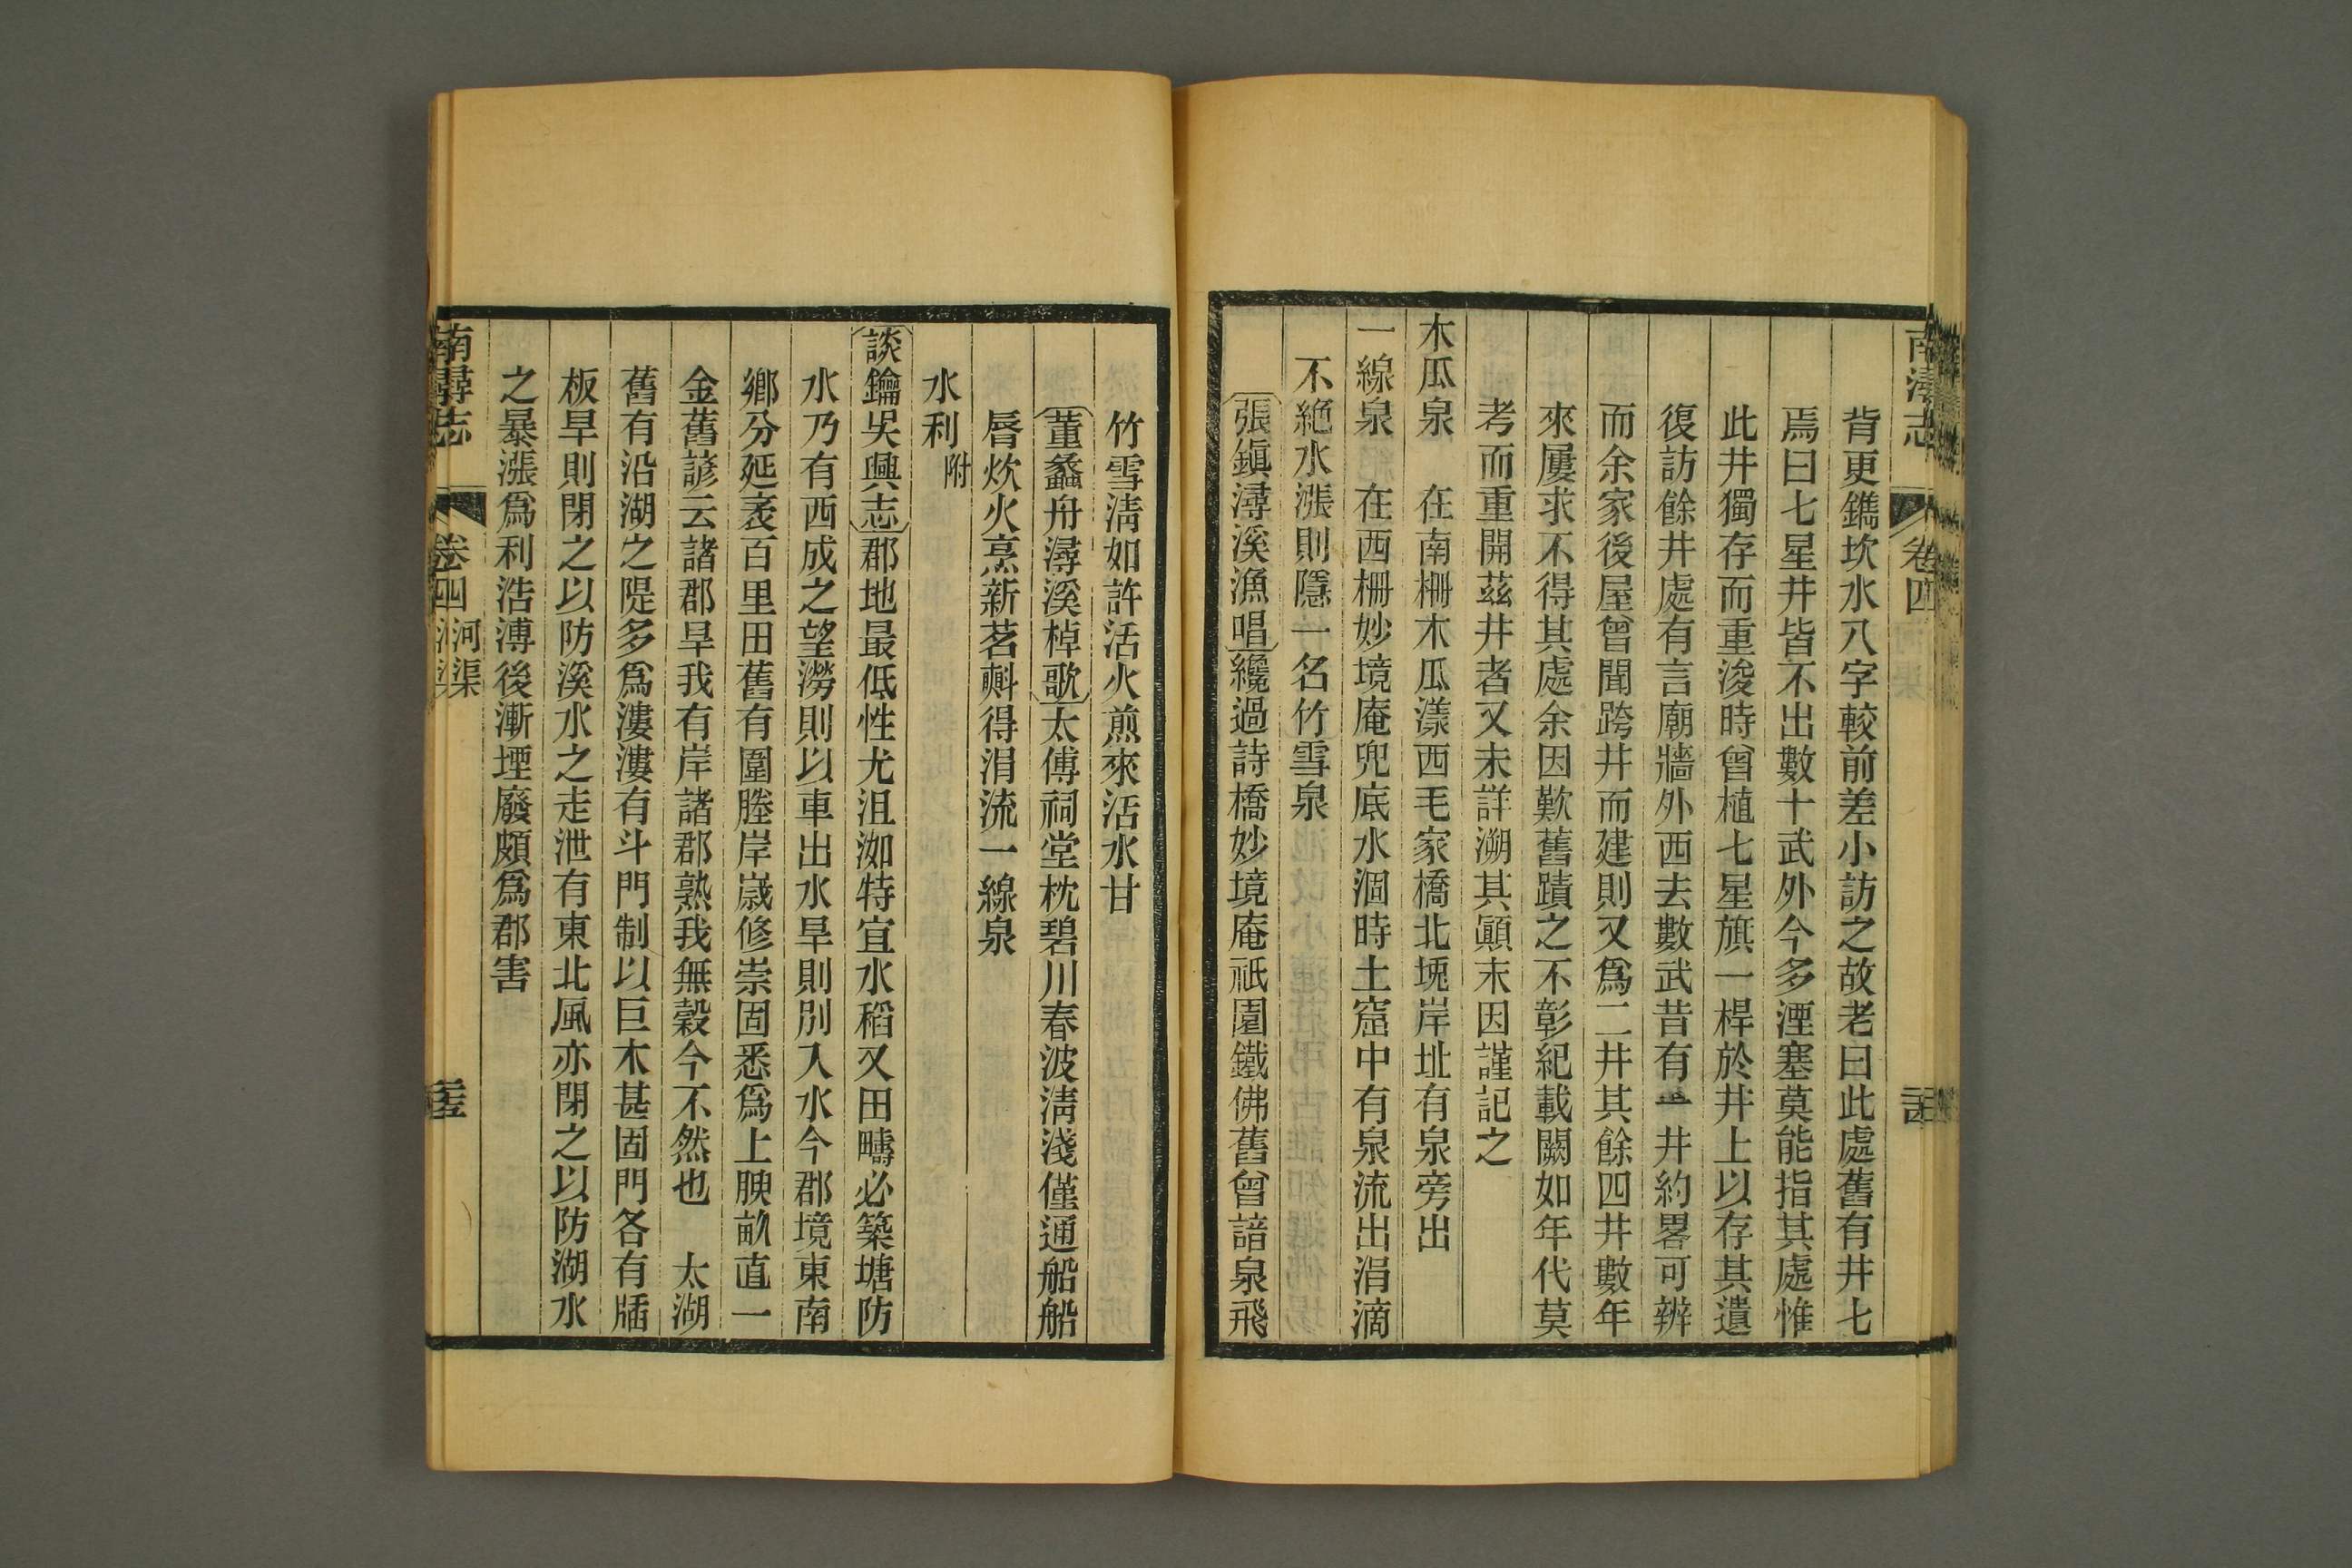 南潯志
卷四
背更鐫坎水八字較前差小訪之故老曰此處舊有井七
焉曰七星井皆不出數十武外今多湮塞莫能指其處惟
此井獨存而重浚時曾植七星旗一桿於井上以存其遺
復訪餘井處有言廟牆外西去數武昔有一井約畧可辨
而余家後屋曾聞跨井而建則又爲二井其餘四井數年
來屢求不得其處余因歎舊蹟之不彰紀載闕如年代莫
考而重開茲井者又未詳溯其顚末因謹記之
木瓜泉　在南柵木瓜漾西毛家橋北堍岸址有泉旁出
一線泉　在西柵妙境庵兜底水涸時土窟中有泉流出涓滴
不絶水漲則隱一名竹雪泉
張鎭潯溪漁唱纔過詩橋妙境庵祇園鐵佛舊曾諳泉飛
竹雪淸如許活火煎來活水甘
董蠡舟潯溪棹歌太傅祠堂枕碧川春波淸淺僅通船船
脣炊火烹新茗㪺得涓流一線泉
水利附
談鑰吳興志郡地最低性尤沮洳特宜水稻又田疇必築塘防
水乃有西成之望澇則以車出水旱則別入水今郡境東南
鄉分延袤百里田舊有圍塍岸嵗修崇固悉爲上腴畝直一
金舊諺云諸郡旱我有岸諸郡熟我無穀今不然也　太湖
舊有沿湖之隄多爲漊漊有斗門制以巨木甚固門各有牐
板旱則閉之以防溪水之走泄有東北風亦閉之以防湖水
之暴漲爲利浩溥後漸堙廢頗爲郡害
南潯志
卷四
河渠